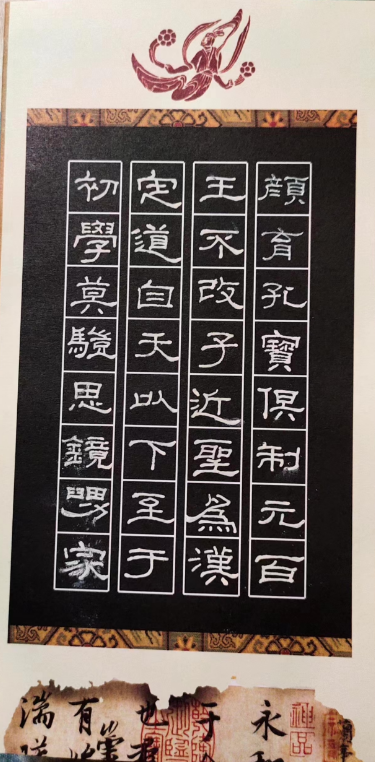 顏育孔寶俱制元百
王不改子近聖爲漢
定道自天以下至于
初學莫驥思鏡舅家
神品
永和
于
也
有
湍